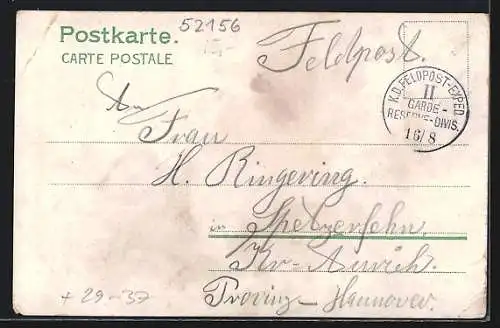 Postkarte.
CARTE POSTALE
52156
15,-
Feldpost.
K.D. FELDPOST-EXPED.
II
GARDE-
RESERVE-DIVIS.
16/8
An
Frau
H. Ringering.
in Spetzerfehn.
Kr-Aurich.
Provinz-Hannover.
+ 29-37